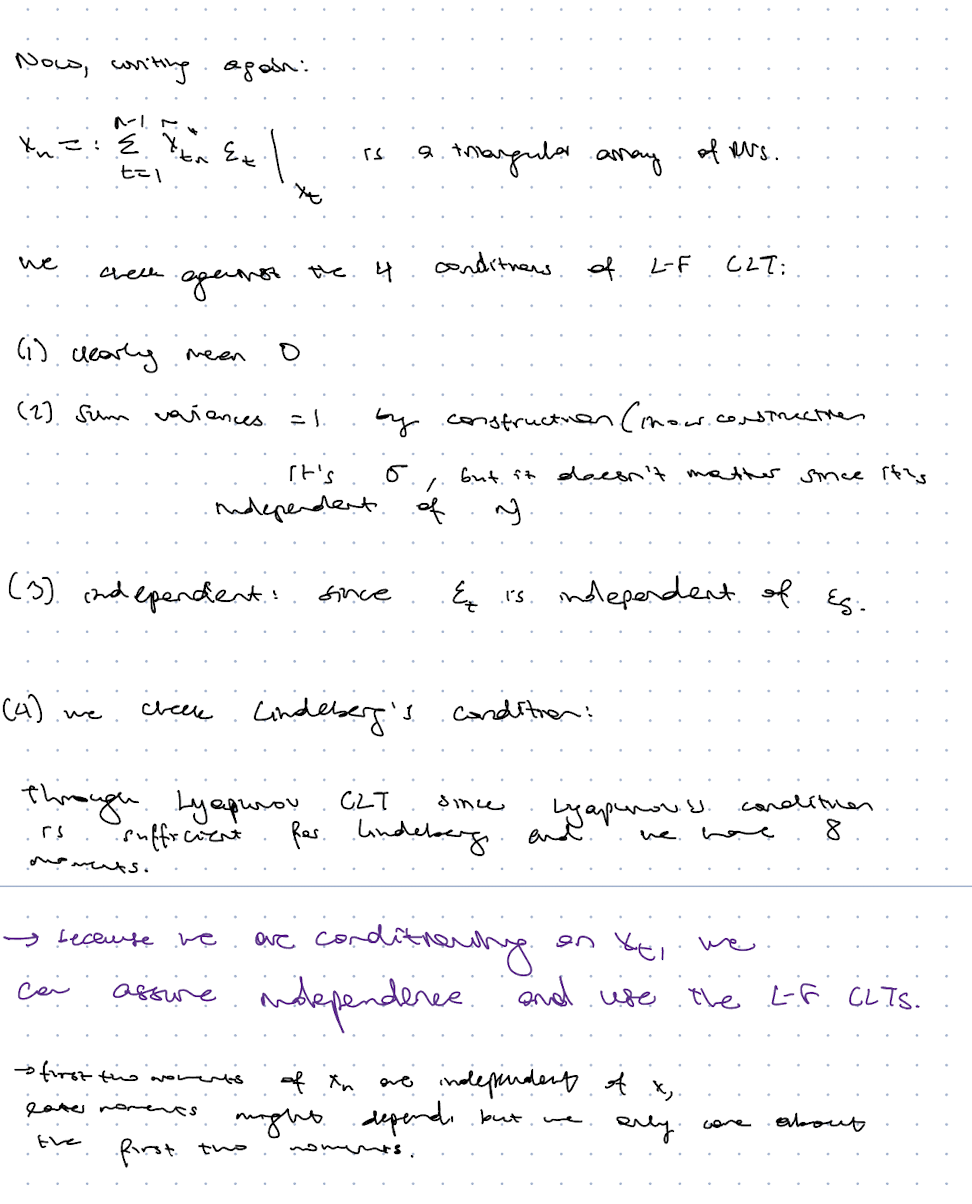 Now, writing again:
Xₙ =: Σ_{t=1}^{n-1} X̃*_{tn} ε_t |_{X_t} is a triangular array of RVs.
we check against the 4 conditions of L-F CLT:
(1) clearly mean 0
(2) sum variances = 1 by construction (in our construction
it's σ, but it doesn't matter since it's
independent of n)
(3) independent: since ε_t is independent of ε_s.
(4) we check Lindeberg's condition:
through Lyapunov CLT since Lyapunov's condition
is sufficient for Lindeberg, and we have 8
moments.
→ because we are conditioning on X_t, we
can assure independence and use the L-F CLTs.
→ first two moments of Xₙ are independent of X,
later moments might depend, but we only care about
the first two moments.